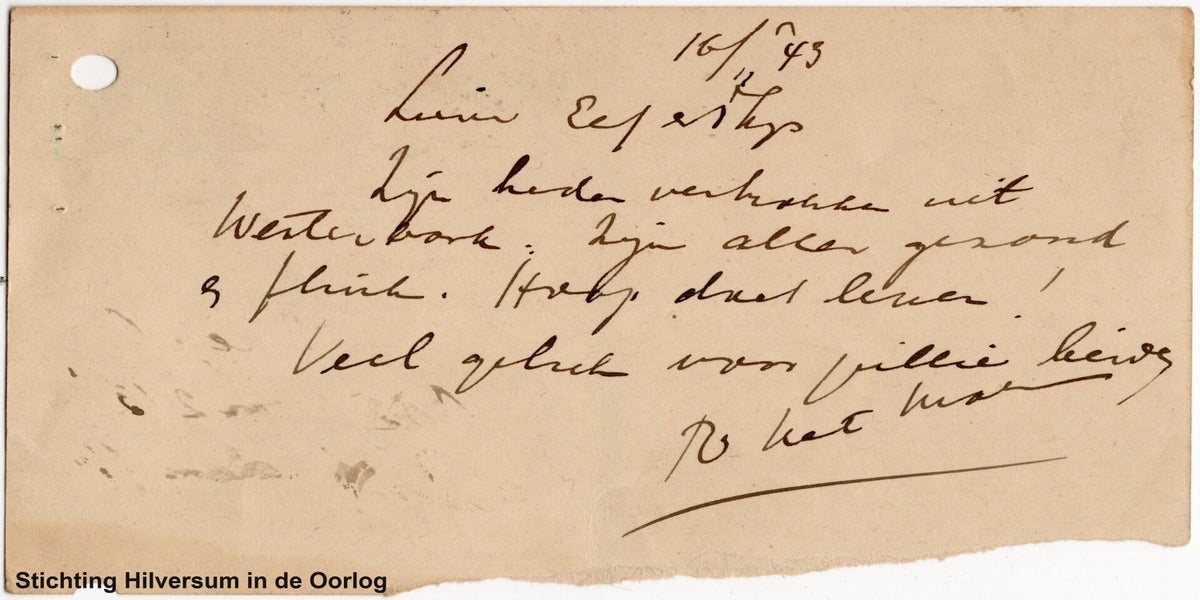 16/11 '43
Lieve Eef en Thijs
Zijn heden vertrokken uit
Westerbork. Zijn allen gezond
en flink. Hoop doet leven!
Veel geluk voor jullie beiden
Stichting Hilversum in de Oorlog